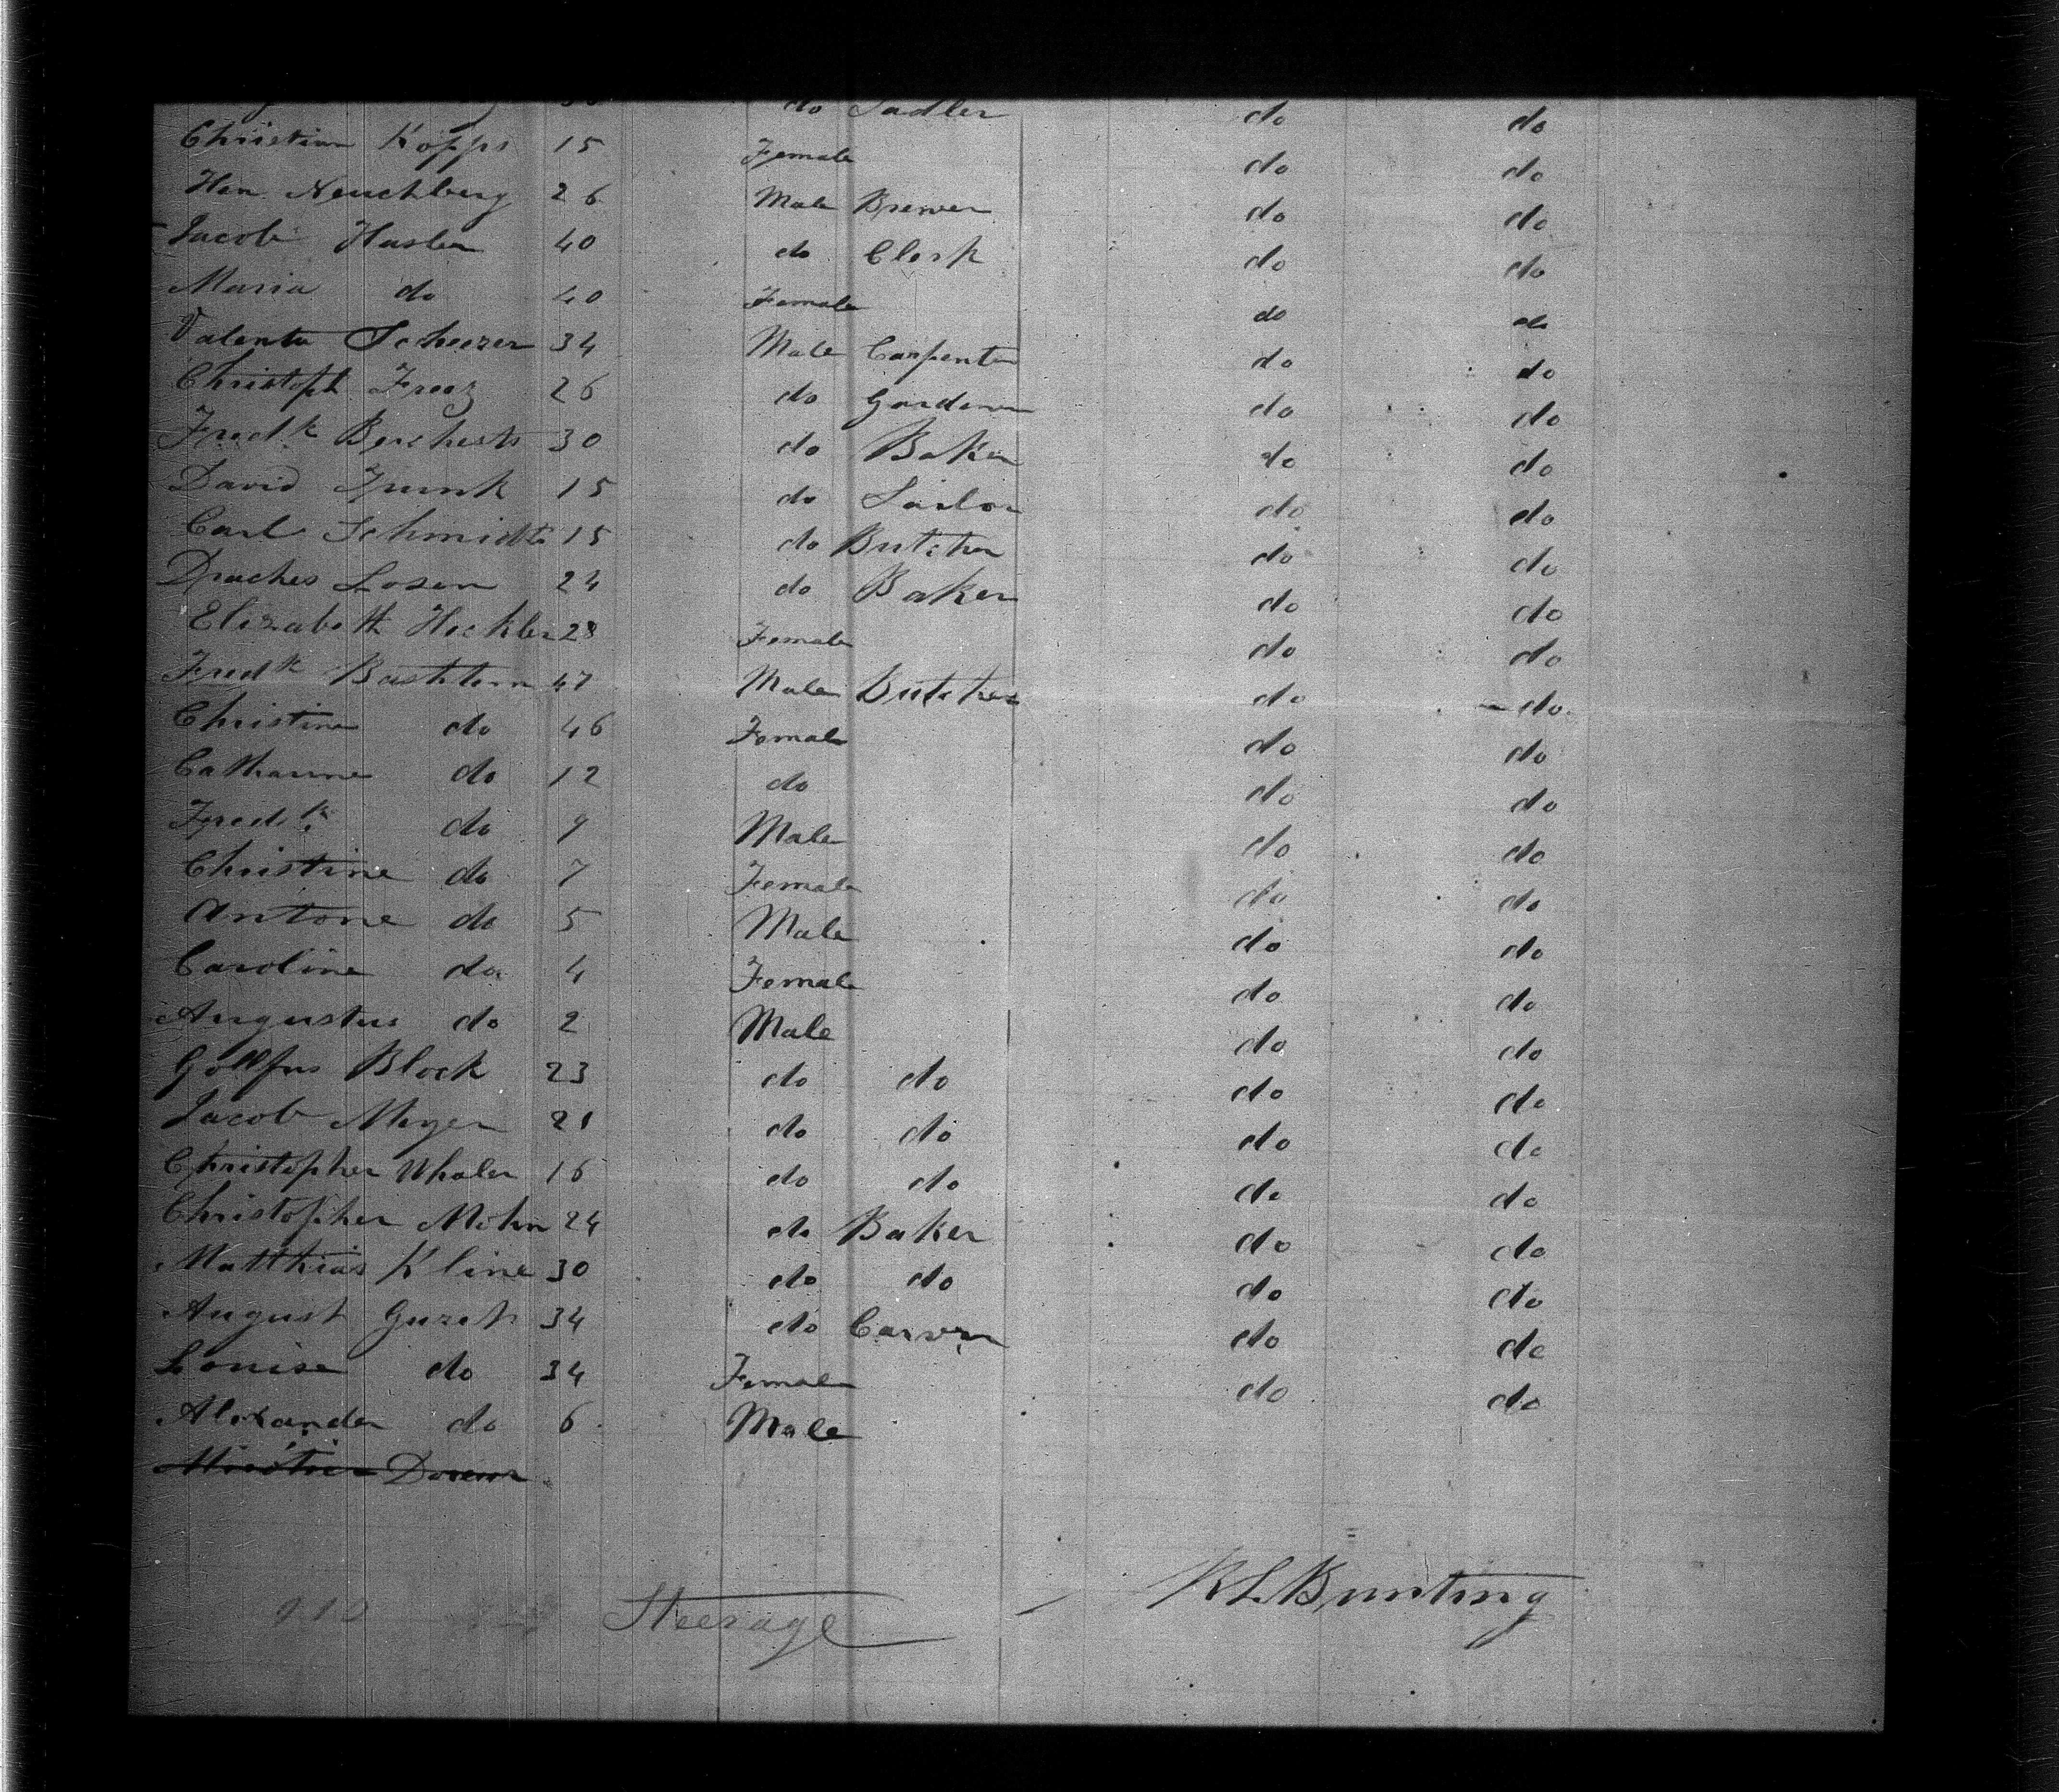 do Sadler do do
Christian Kopps 15 Female do do
Hen Neuchberg 26 Male Brewer do do
Jacob Hasler 40 do Clerk do do
Maria do 40 Female do do
Valentn Scheezer 34 Male Carpenter do do
Christoph Freoz 26 do Gardener do do
Fredk 30 do Baker do do
David Funk 15 do Sailor do do
Carl Schmidt 15 do Butcher do do
Draches Losen 24 do Baker do do
Elizabeth Heckler 28 Female do do
Fredk 47 Male Butcher do do
Christine do 46 Female do do
Catharine do 12 do do do
Fredk do 9 Male do do
Christine do 7 Female do do
Antone do 5 Male do do
Caroline do 4 Female do do
Augustus do 2 Male do do
Block 23 do do do do
Jacob Meyer 21 do do do do
Christopher Whaler 16 do do do do
Christopher Mohn 24 do Baker do do
Matthias Kline 30 do do do do
August Guzeh 34 do Carver do do
Louise do 34 Female do do
Alexander do 6 Male
Steerage R L Bunting